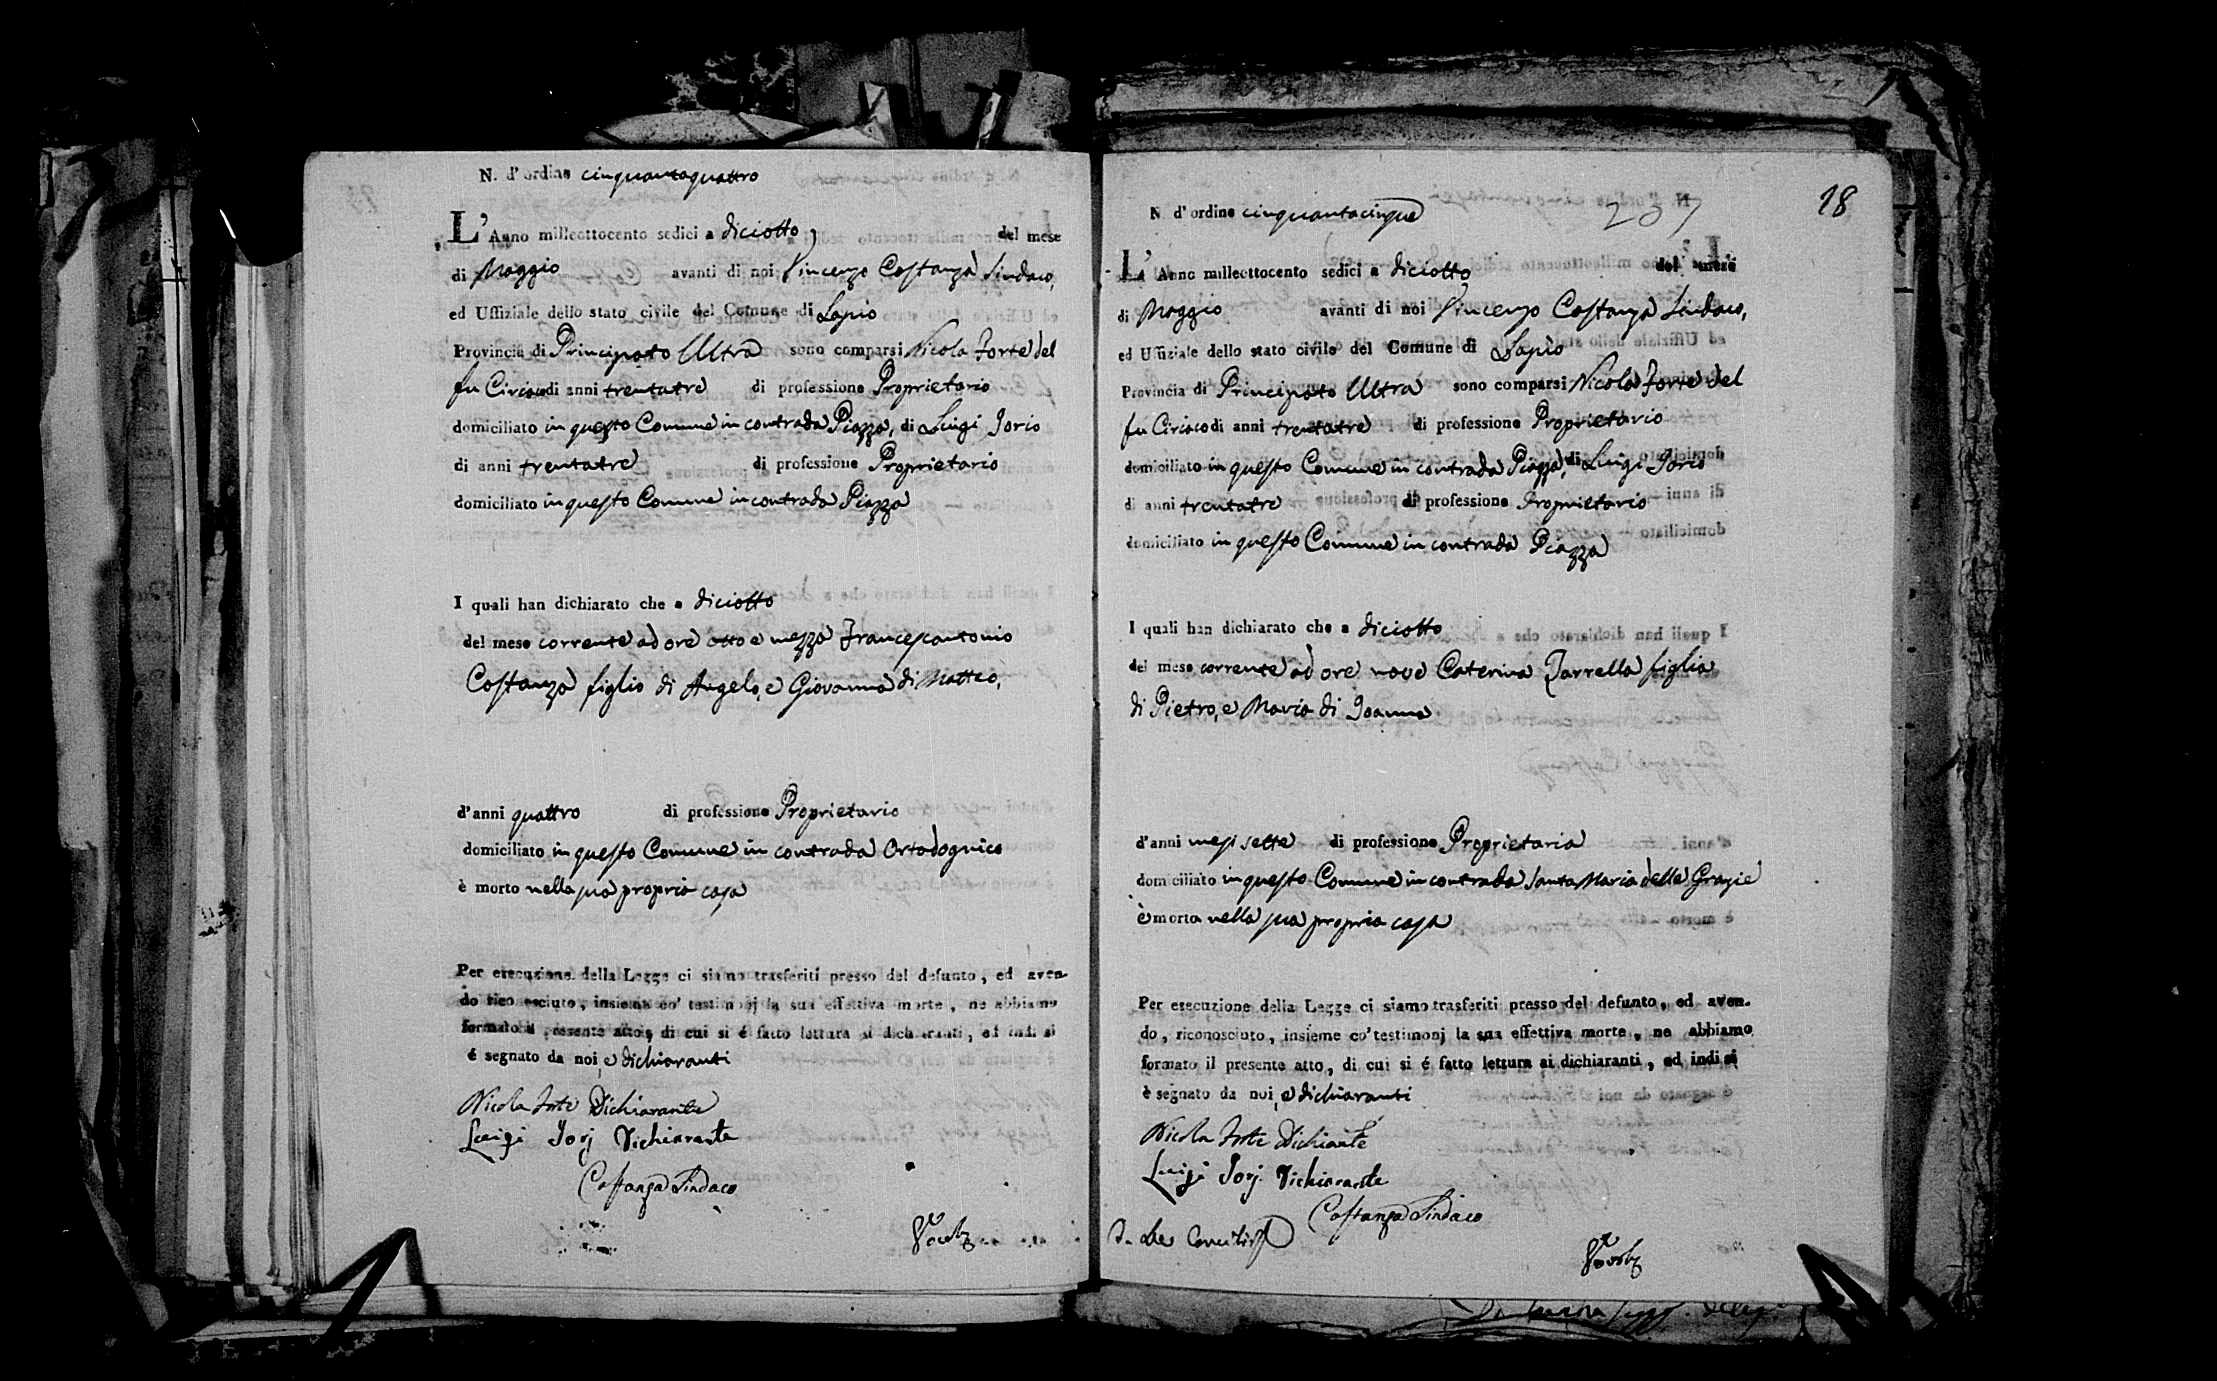 N. d'ordine cinquantaquattro
L'Anno milleottocento sedici a diciotto del mese
di Maggio avanti di noi Vincenzo Costanza Sindaco,
ed Uffiziale dello stato civile del Comune di Lapio
Provincia di Principato Ultra sono comparsi Nicola Forte del
fu Ciriaco di anni trentatre di professione Proprietario
domiciliato in questo Comune in contrada Piazza, di Luigi Iorio
di anni trentatre di professione Proprietario
domiciliato in questo Comune in contrada Piazza
I quali han dichiarato che a diciotto
del mese corrente ad ore otto e mezza Francescantonio
Costanza figlio di Angelo, e Giovanna di Matteo,
d'anni quattro di professione Proprietario
domiciliato in questo Comune in contrada Ortadognico
è morto nella sua propria casa
Per esecuzione della Legge ci siamo trasferiti presso del defunto, ed aven-
do riconosciuto, insieme co' testimonj la sua effettiva morte, ne abbiamo
formato il presente atto, di cui si é fatto lettura ai dichiaranti, ed indi si
é segnato da noi, e dichiaranti
Nicola Forte Dichiarante
Luigi Iorj Dichiarante
Costanza Sindaco
N. d'ordine cinquantacinque
207
18
L'Anno milleottocento sedici a diciotto del mese
di Maggio avanti di noi Vincenzo Costanza Sindaco,
ed Uffiziale dello stato civile del Comune di Lapio
Provincia di Principato Ultra sono comparsi Nicola Forte del
fu Ciriaco di anni trentatre di professione Proprietario
domiciliato in questo Comune in contrada Piazza, di Luigi Iorio
di anni trentatre di professione Proprietario
domiciliato in questo Comune in contrada Piazza
I quali han dichiarato che a diciotto
del mese corrente ad ore nove Caterina Zarrella figlia
di Pietro, e Maria di Ioanna
d'anni mesi sette di professione Proprietaria
domiciliato in questo Comune in contrada Santa Maria delle Grazie
è morta nella sua propria casa
Per esecuzione della Legge ci siamo trasferiti presso del defunto, ed aven-
do, riconosciuto, insieme co' testimonj la sua effettiva morte, ne abbiamo
formato il presente atto, di cui si é fatto lettura ai dichiaranti, ed indi si
è segnato da noi, e dichiaranti
Nicola Forte Dichiante
Luigi Iorj. Dichiarante
Costanza Sindaco